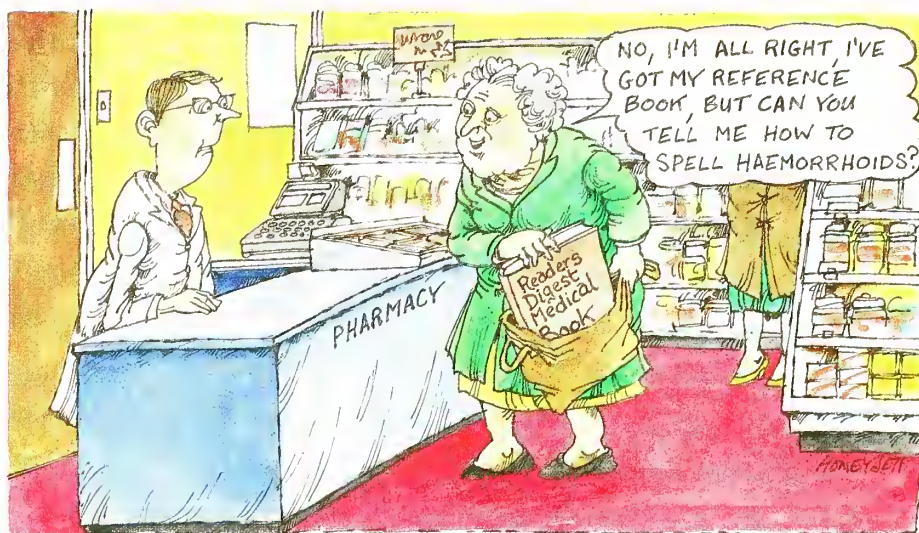 NO, I'M ALL RIGHT, I'VE
GOT MY REFERENCE
BOOK, BUT CAN YOU
TELL ME HOW TO
SPELL HAEMORRHOIDS?
Readers
Digest
Medical
Book
PHARMACY